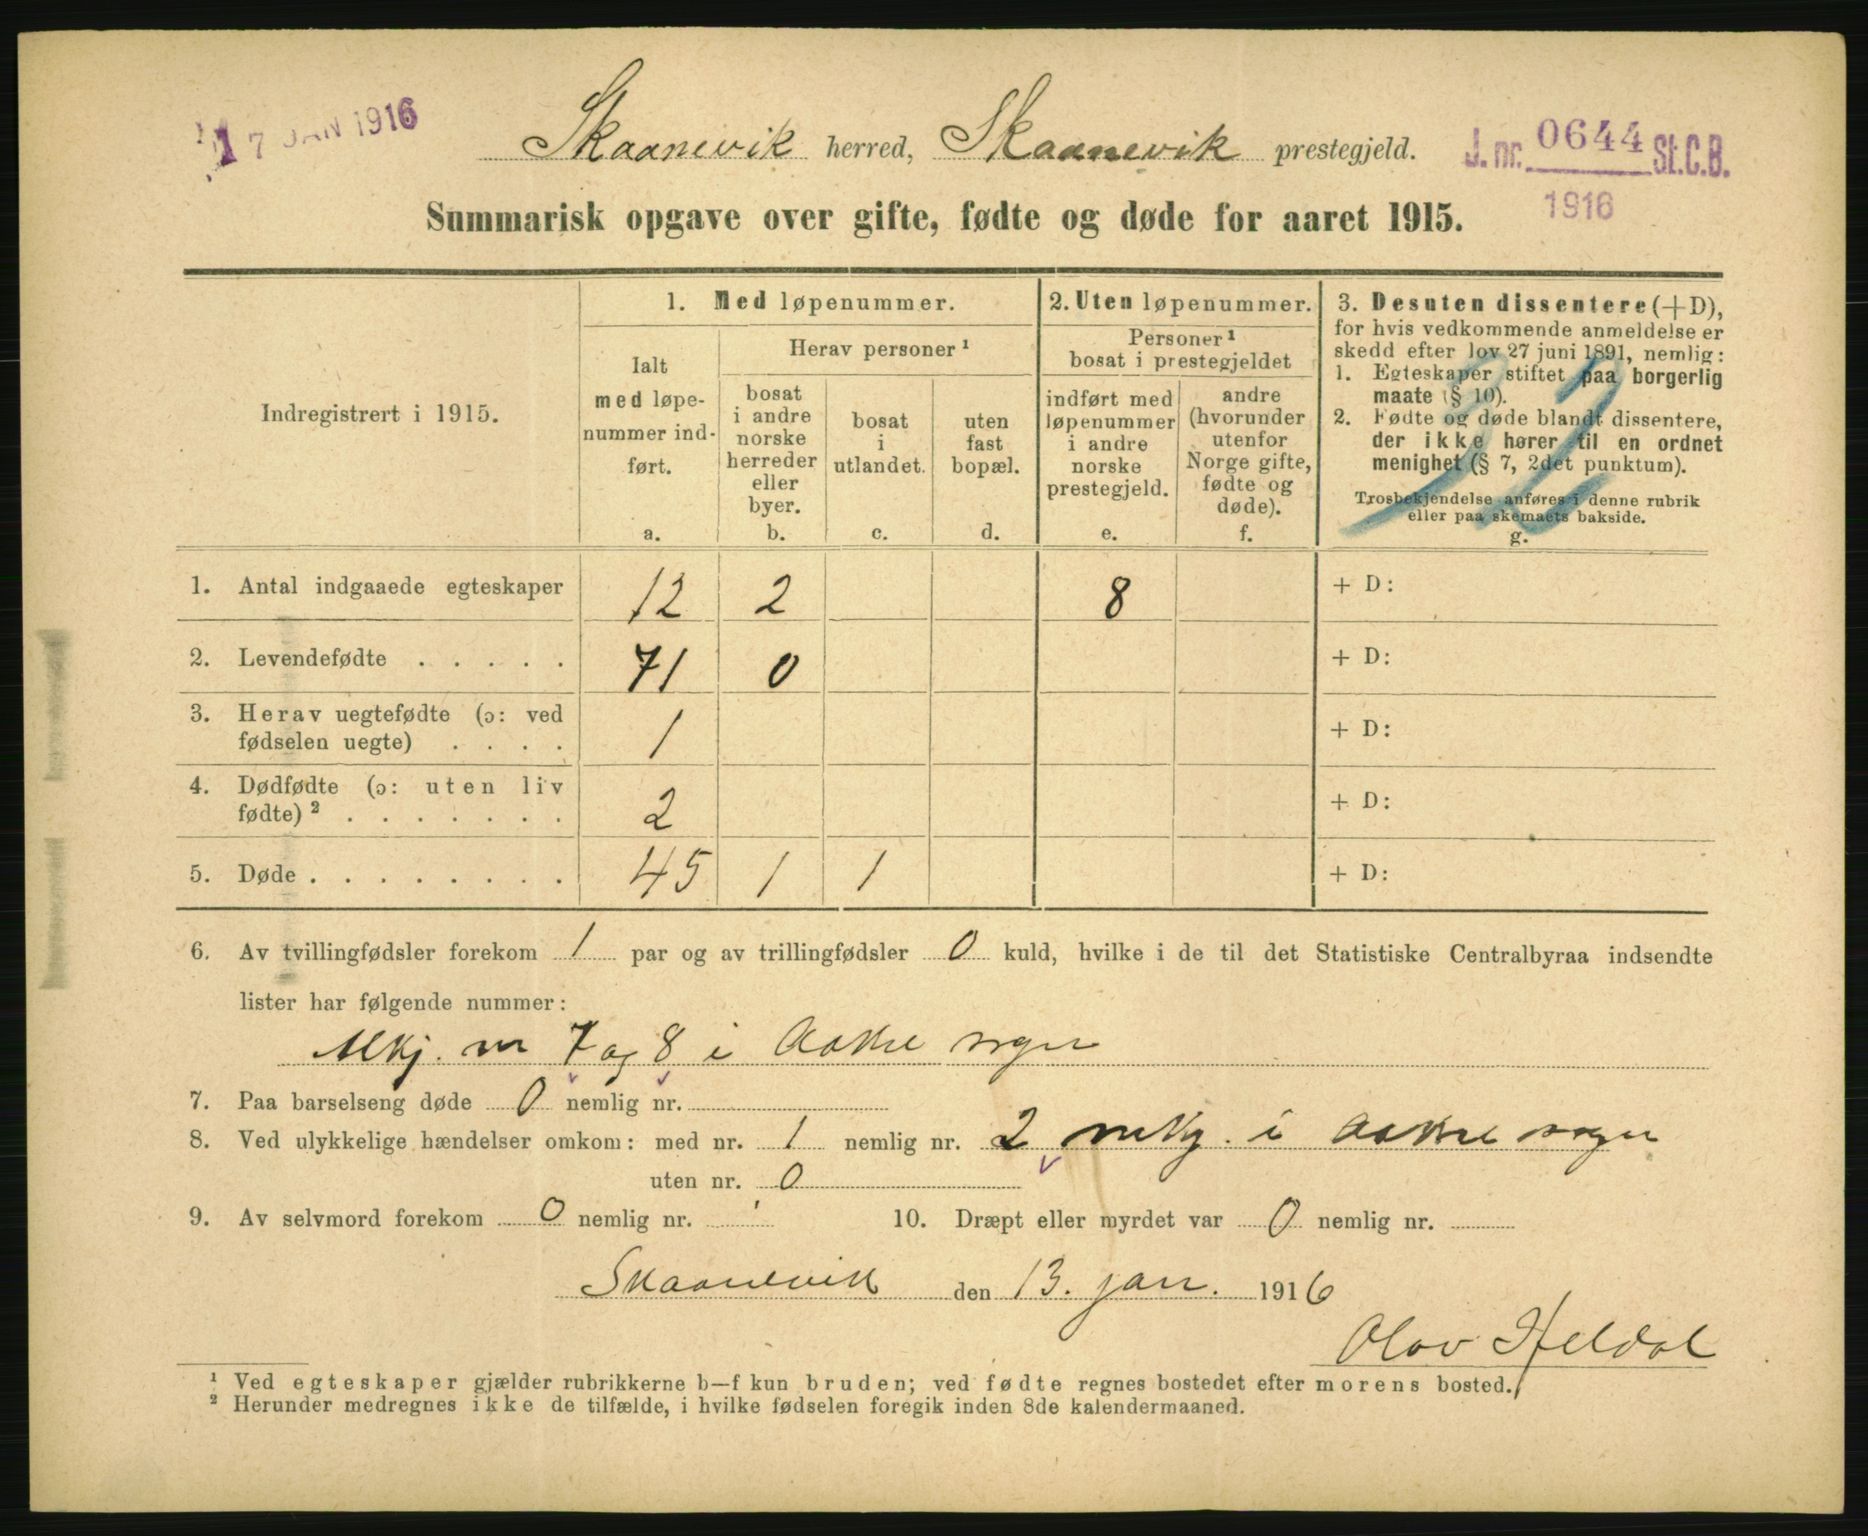 17 JAN 1916
Skaanevik herred, Skaanevik prestegjeld.
J. nr. 0644 St.C.B.
1916
Summarisk opgave over gifte, fødte og døde for aaret 1915.
Indregistrert i 1915.
1. Med løpenummer.
Ialt
med løpe-
nummer ind-
ført.
a.
Herav personer ¹
bosat
i andre
norske
herreder
eller
byer.
b.
bosat
i
utlandet.
c.
uten
fast
bopæl.
d.
2. Uten løpenummer.
Personer ¹
bosat i prestegjeldet
indført med
løpenummer
i andre
norske
prestegjeld.
e.
andre
(hvorunder
utenfor
Norge gifte,
fødte og
døde).
f.
3. Desuten dissentere (+D),
for hvis vedkommende anmeldelse er
skedd efter lov 27 juni 1891, nemlig:
1. Egteskaper stiftet paa borgerlig
maate (§ 10).
2. Fødte og døde blandt dissentere,
der ikke hører til en ordnet
menighet (§ 7, 2det punktum).
Trosbekjendelse anføres i denne rubrik
eller paa skemaets bakside.
g.
1. Antal indgaaede egteskaper 12 2 8 + D:
2. Levendefødte . . . . . 71 0 + D:
3. Herav uegtefødte (ɔ: ved
fødselen uegte) . . . . 1 + D:
4. Dødfødte (ɔ: uten liv
fødte) ² . . . . . . . 2 + D:
5. Døde . . . . . . . . 45 1 1 + D:
6. Av tvillingfødsler forekom 1 par og av trillingfødsler 0 kuld, hvilke i de til det Statistiske Centralbyraa indsendte
lister har følgende nummer:
Mkj. nr 7 og 8 i Aakre sogn
7. Paa barselseng døde 0 nemlig nr.
8. Ved ulykkelige hændelser omkom: med nr. 1 nemlig nr. 2 mkj. i Aakre sogn
uten nr. 0
9. Av selvmord forekom 0 nemlig nr.
10. Dræpt eller myrdet var 0 nemlig nr.
Skaanevik den 13. jan. 1916
Olav Heldal
¹ Ved egteskaper gjælder rubrikkerne b—f kun bruden; ved fødte regnes bostedet efter morens bosted.
² Herunder medregnes ikke de tilfælde, i hvilke fødselen foregik inden 8de kalendermaaned.